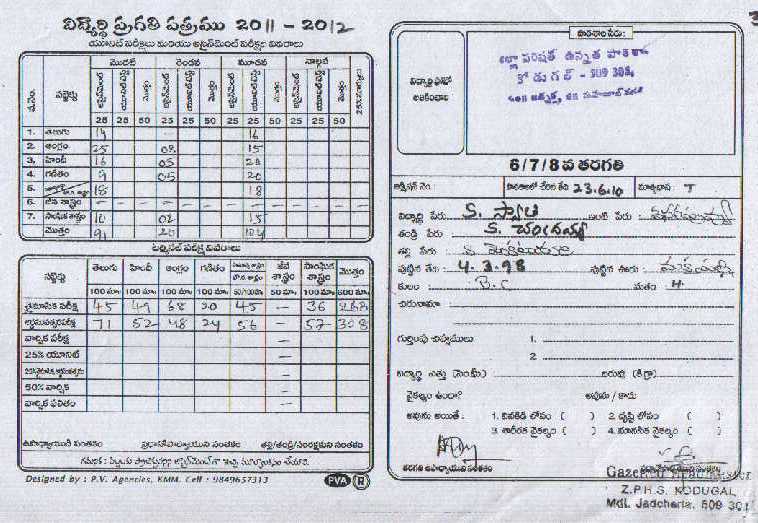 విద్యార్థి ప్రగతి పత్రము 2011 - 2012
యూనిట్ పరీక్షలు మరియు అసైన్‌మెంట్ పరీక్షల వివరాలు
వ.సం. సబ్జెక్టు మొదటి రెండవ మూడవ నాల్గవ
అసైన్‌మెంట్ యూనిట్ టెస్టు మొత్తం అసైన్‌మెంట్ యూనిట్ టెస్టు మొత్తం అసైన్‌మెంట్ యూనిట్ టెస్టు మొత్తం అసైన్‌మెంట్ యూనిట్ టెస్టు మొత్తం
25 25 50 25 25 50 25 25 50 25 25 50
1. తెలుగు 14 — 16
2. ఆంగ్లం 25 08 15
3. హిందీ 16 05 20
4. గణితం 9 05 20
5. 18 18
6. జీవ శాస్త్రం — — —
7. సాంఘిక శాస్త్రం 10 02 15
మొత్తం 91 20 104
టర్మినల్ పరీక్ష వివరాలు
సబ్జెక్టు తెలుగు హిందీ ఆంగ్లం గణితం జీవ శాస్త్రం సాంఘిక శాస్త్రం మొత్తం
100 మా. 100 మా. 100 మా. 100 మా. 50/100మా. 50 మా. 100 మా. 600 మా.
త్రైమాసిక పరీక్ష 45 49 68 20 45 — 36 268
అర్ధసంవత్సర పరీక్ష 71 52 48 24 56 — 57 308
వార్షిక పరీక్ష —
25% యూనిట్ —
—
50% వార్షిక —
వార్షిక ఫలితం —
ఉపాధ్యాయుని సంతకం ప్రధానోపాధ్యాయుని సంతకం తల్లి/తండ్రి/సంరక్షకుని సంతకం
Designed by : P.V. Agencies, KMM. Cell : 9849657313 PVA R
పాఠశాల పేరు :
విద్యార్థి ఫోటో అతికించాలి
జిల్లా పరిషత్ ఉన్నత పాఠశాల
కోడుగల్ - 509 301
6/7/8వ తరగతి
అడ్మిషన్ నెం. పాఠశాలలో చేరిన తేది 23.6.10 మాతృభాష T
విద్యార్థి పేరు S. స్వాతి ఇంటి పేరు
తండ్రి పేరు S. చంద్రయ్య
తల్లి పేరు S.
పుట్టిన తేది 4.3.98 పుట్టిన ఊరు
కులం B.C మతం H
చిరునామా
గుర్తింపు చిహ్నములు 1.
2.
విద్యార్థి ఎత్తు (సెం.మీ) బరువు (కి.గ్రా)
వైకల్యం ఉందా? అవును / కాదు
అవును అయితే : 1. వినికిడి లోపం ( ) 2. దృష్టి లోపం ( )
3. శారీరక వైకల్యం ( ) 4. మానసిక వైకల్యం ( )
తరగతి ఉపాధ్యాయుని సంతకం ప్రధానోపాధ్యాయుని సంతకం
Gazetted Headmaster
Z.P.H.S. KODUGAL
Mdl. Jadcherla. 509 301